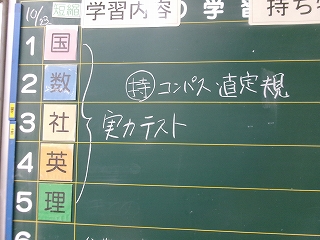 10/23 短縮 学習内容の学習 持ち
1 国
2 数 持 コンパス 直定規
3 社 実力テスト
4 英
5 理
6